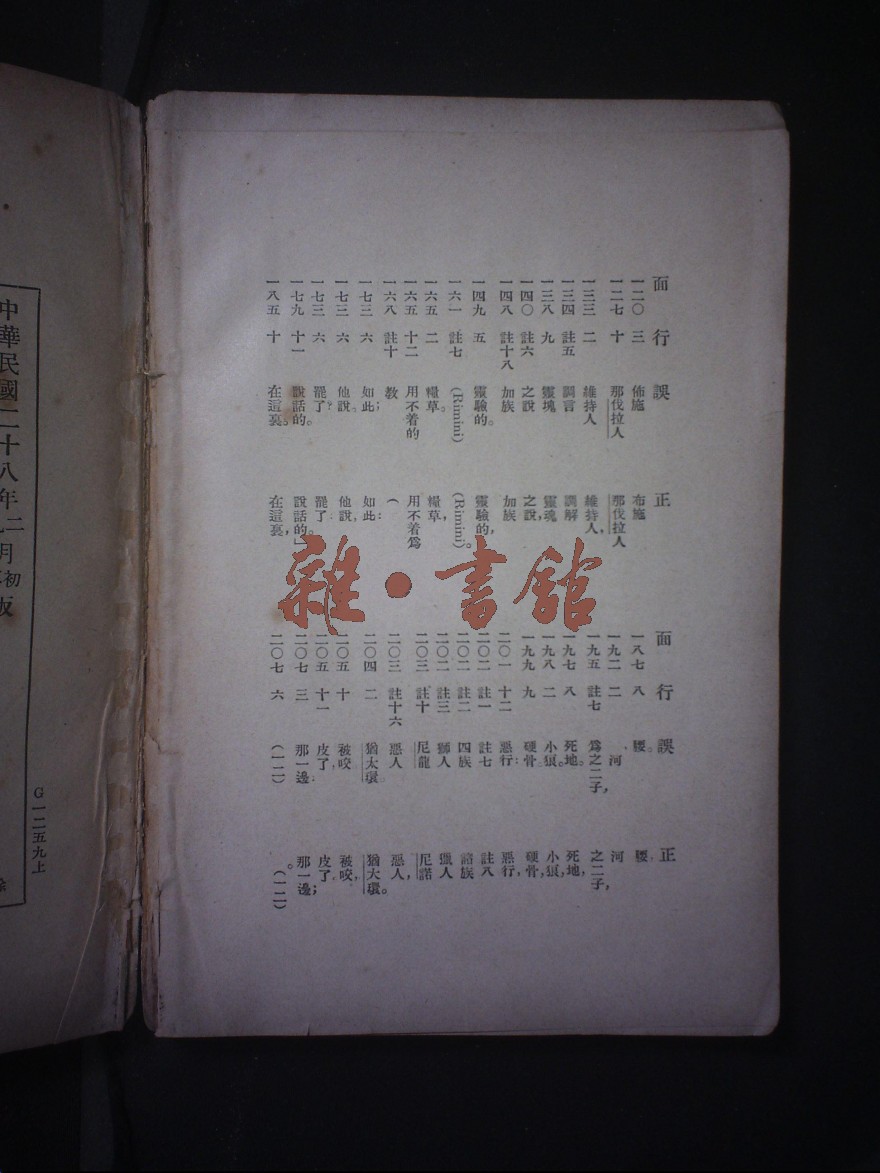 面 行 誤 正
一二〇 三 佈施 布施
一二七 十 那伐拉人 那伐拉人
一三三 二 維持人 維持人,
一三四 註五 調言 調解
一三八 九 靈塊 靈魂
一四〇 註六 之說 之說,
一四八 註十八 加族 加族
一四九 五 靈驗的。 靈驗的,
一六一 註七 (Rimini) (Rimini)。
一六五 二 糧草。 糧草,
一六五 十二 用不着的 用不着爲
一六八 註十 教 (
一七三 六 如此; 如此:
一七三 六 他說。 他說,
一七三 六 罷了? 罷了:
一七九 十一 說話的。 說話的。」
一八五 十 在這裏。 在這裏,
面 行 誤 正
一八七 八 腰。 腰,
一九二 二 河 河
一九五 註七 爲之二子, 之二子,
一九七 八 死地。 死地,
一九八 二 小狼。 小狼,
一九九 九 硬骨。 硬骨,
二〇一 十二 惡行: 惡行,
二〇二 註一 註七 註八
二〇二 註二 四族 諮族
二〇二 註三 獅人 獵人
二〇三 註十 尼龍 尼諾
二〇三 註十六 惡人 惡人,
二〇四 二 猶太環 猶大環。
二〇五 十 被咬 被咬,
二〇五 十一 皮了, 皮了。
二〇七 三 那一邊: 那一邊;
二〇七 六 (一二) 。(一二)
雜·書館
中華民國二十八年二月初版
G一二五九上